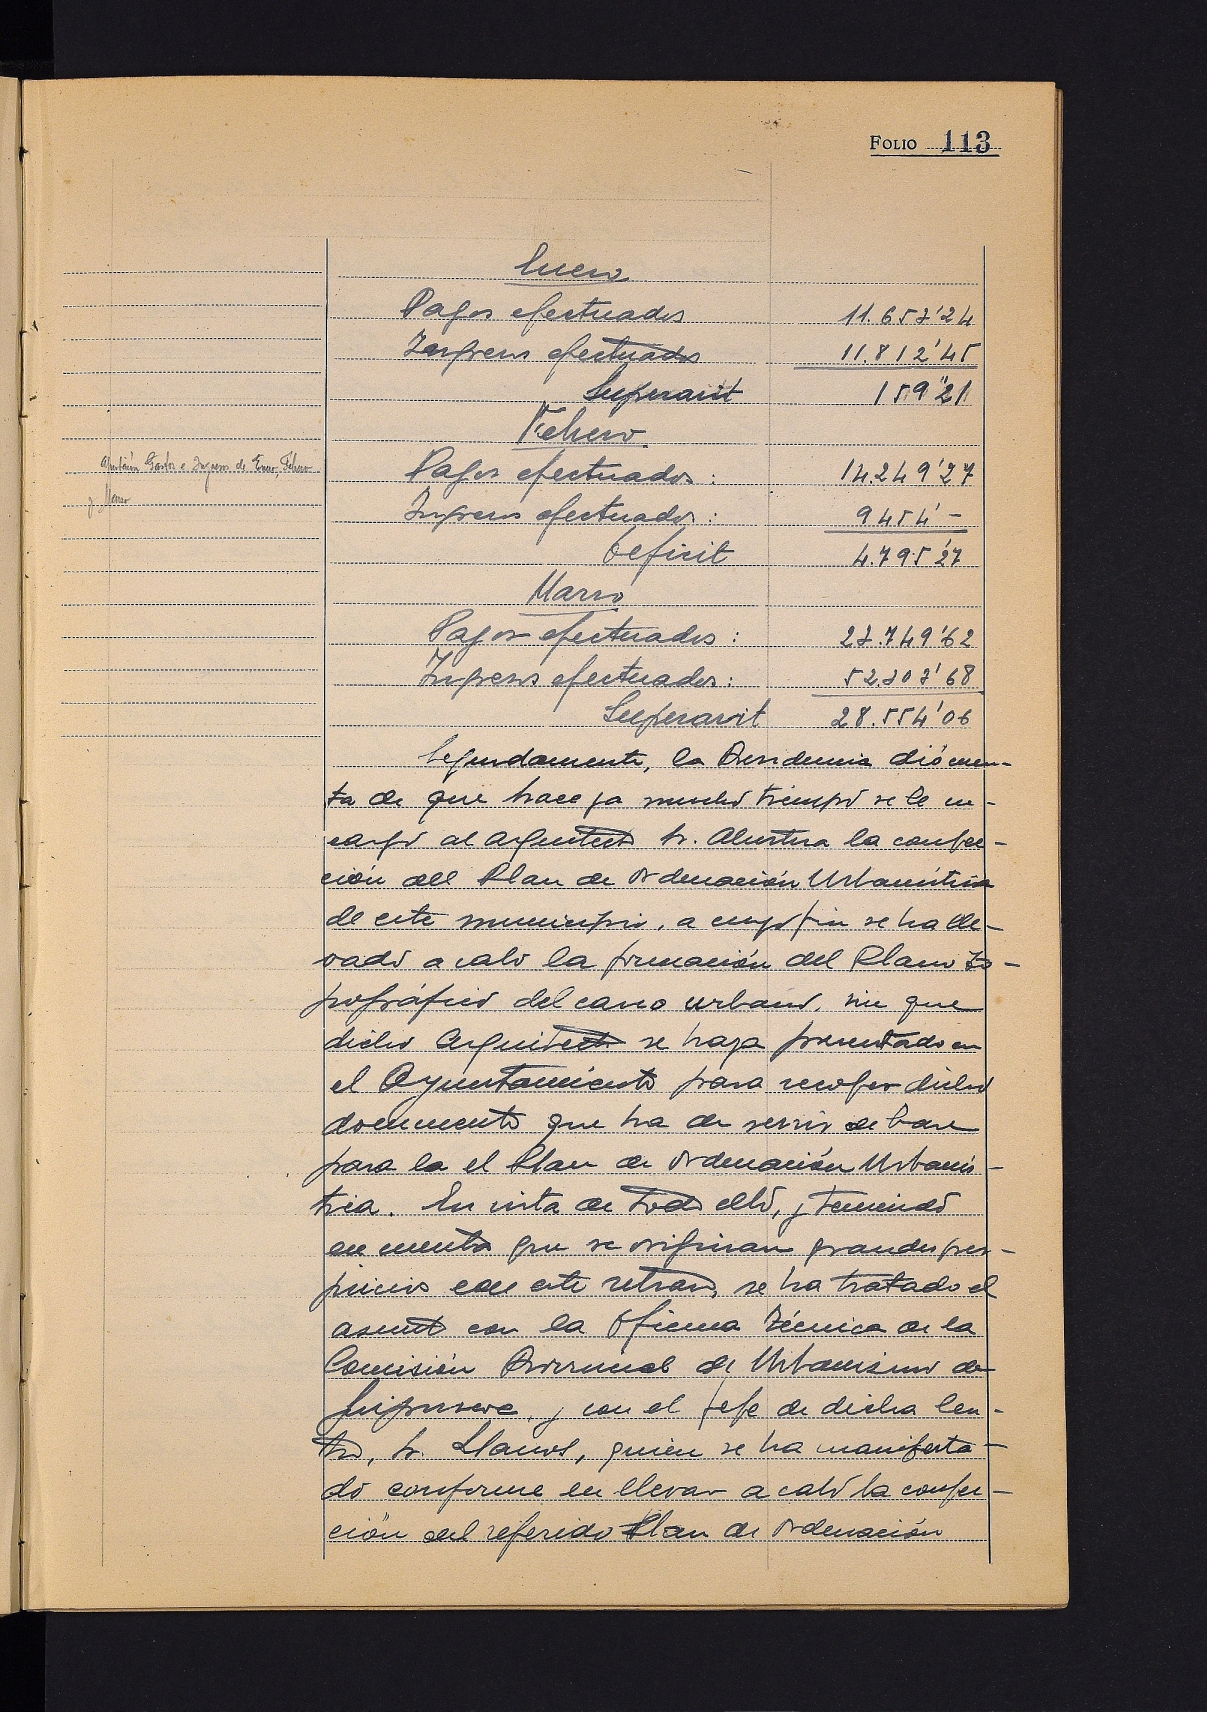 FOLIO 113
Enero
Pagos efectuados 11.653'24
Ingresos efectuados 11.812'45
Superavit 159'21
Febrero
Aprobación Gastos e Ingresos de Enero, Febrero
y Marzo
Pagos efectuados: 14.249'27
Ingresos efectuados: 9454'-
Deficit 4.795'27
Marzo
Pagos efectuados: 23.749'62
Ingresos efectuados: 52.303'68
Superavit 28.554'06
Segundamente, la Presidencia dió cuen-
ta de que hace ya mucho tiempo se le en-
cargó al arquitecto Sr. la confec-
ción del Plan de Ordenación Urbanística
de este municipio, a cuyo fin se ha lle-
vado a cabo la formación del Plano to-
pográfico del casco urbano, sin que
dicho Arquitecto se haya presentado en
el Ayuntamiento para recoger dicho
documento que ha de servir de base
para la el Plan de Ordenación Urbanís-
tica. En vista de todo ello, y teniendo
en cuenta que se originan grandes per-
juicios con este retraso, se ha tratado el
asunto con la Oficina Técnica de la
Comisión Provincial de Urbanismo de
Guipuzcoa, y con el Jefe de dicha Cen-
tro, Sr. Llanos, quien se ha manifesta-
do conforme en llevar a cabo la confec-
ción del referido Plan de Ordenación